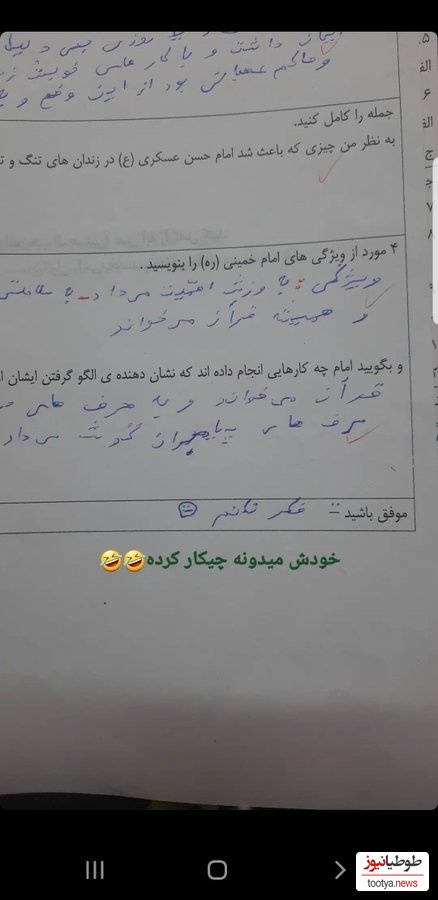 ایمان داشت و با کار های خویش
و حاکم عصبانی بود از این وضع و
۵.
الف
۶
الف
ج
۷
۸
جمله را کامل کنید.
به نظر من چیزی که باعث شد امام حسن عسکری (ع) در زندان های تنگ و
۴ مورد از ویژگی های امام خمینی (ره) را بنویسید .
ویژگی : به ورزش اهمیت میداد - به سلامتی
و همیشه قرآن میخواند
و بگویید امام چه کارهایی انجام داده اند که نشان دهنده ی الگو گرفتن ایشان از
قرآن میخواند و به حرف های
حرف های پیامبران گوش میداد
موفق باشید = فکر نکنم ☹
خودش میدونه چیکار کرده🤣🤣
طوطیانیوز
tootya.news